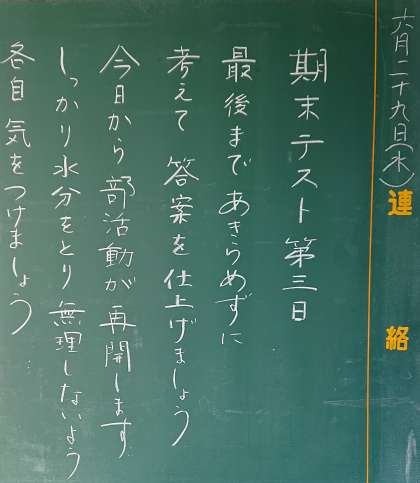 六月二十九日(木)
連絡
期末テスト第三日
最後まであきらめずに
考えて答案を仕上げましょう
今日から部活動が再開します
しっかり水分をとり無理しないよう
各自気をつけましょう